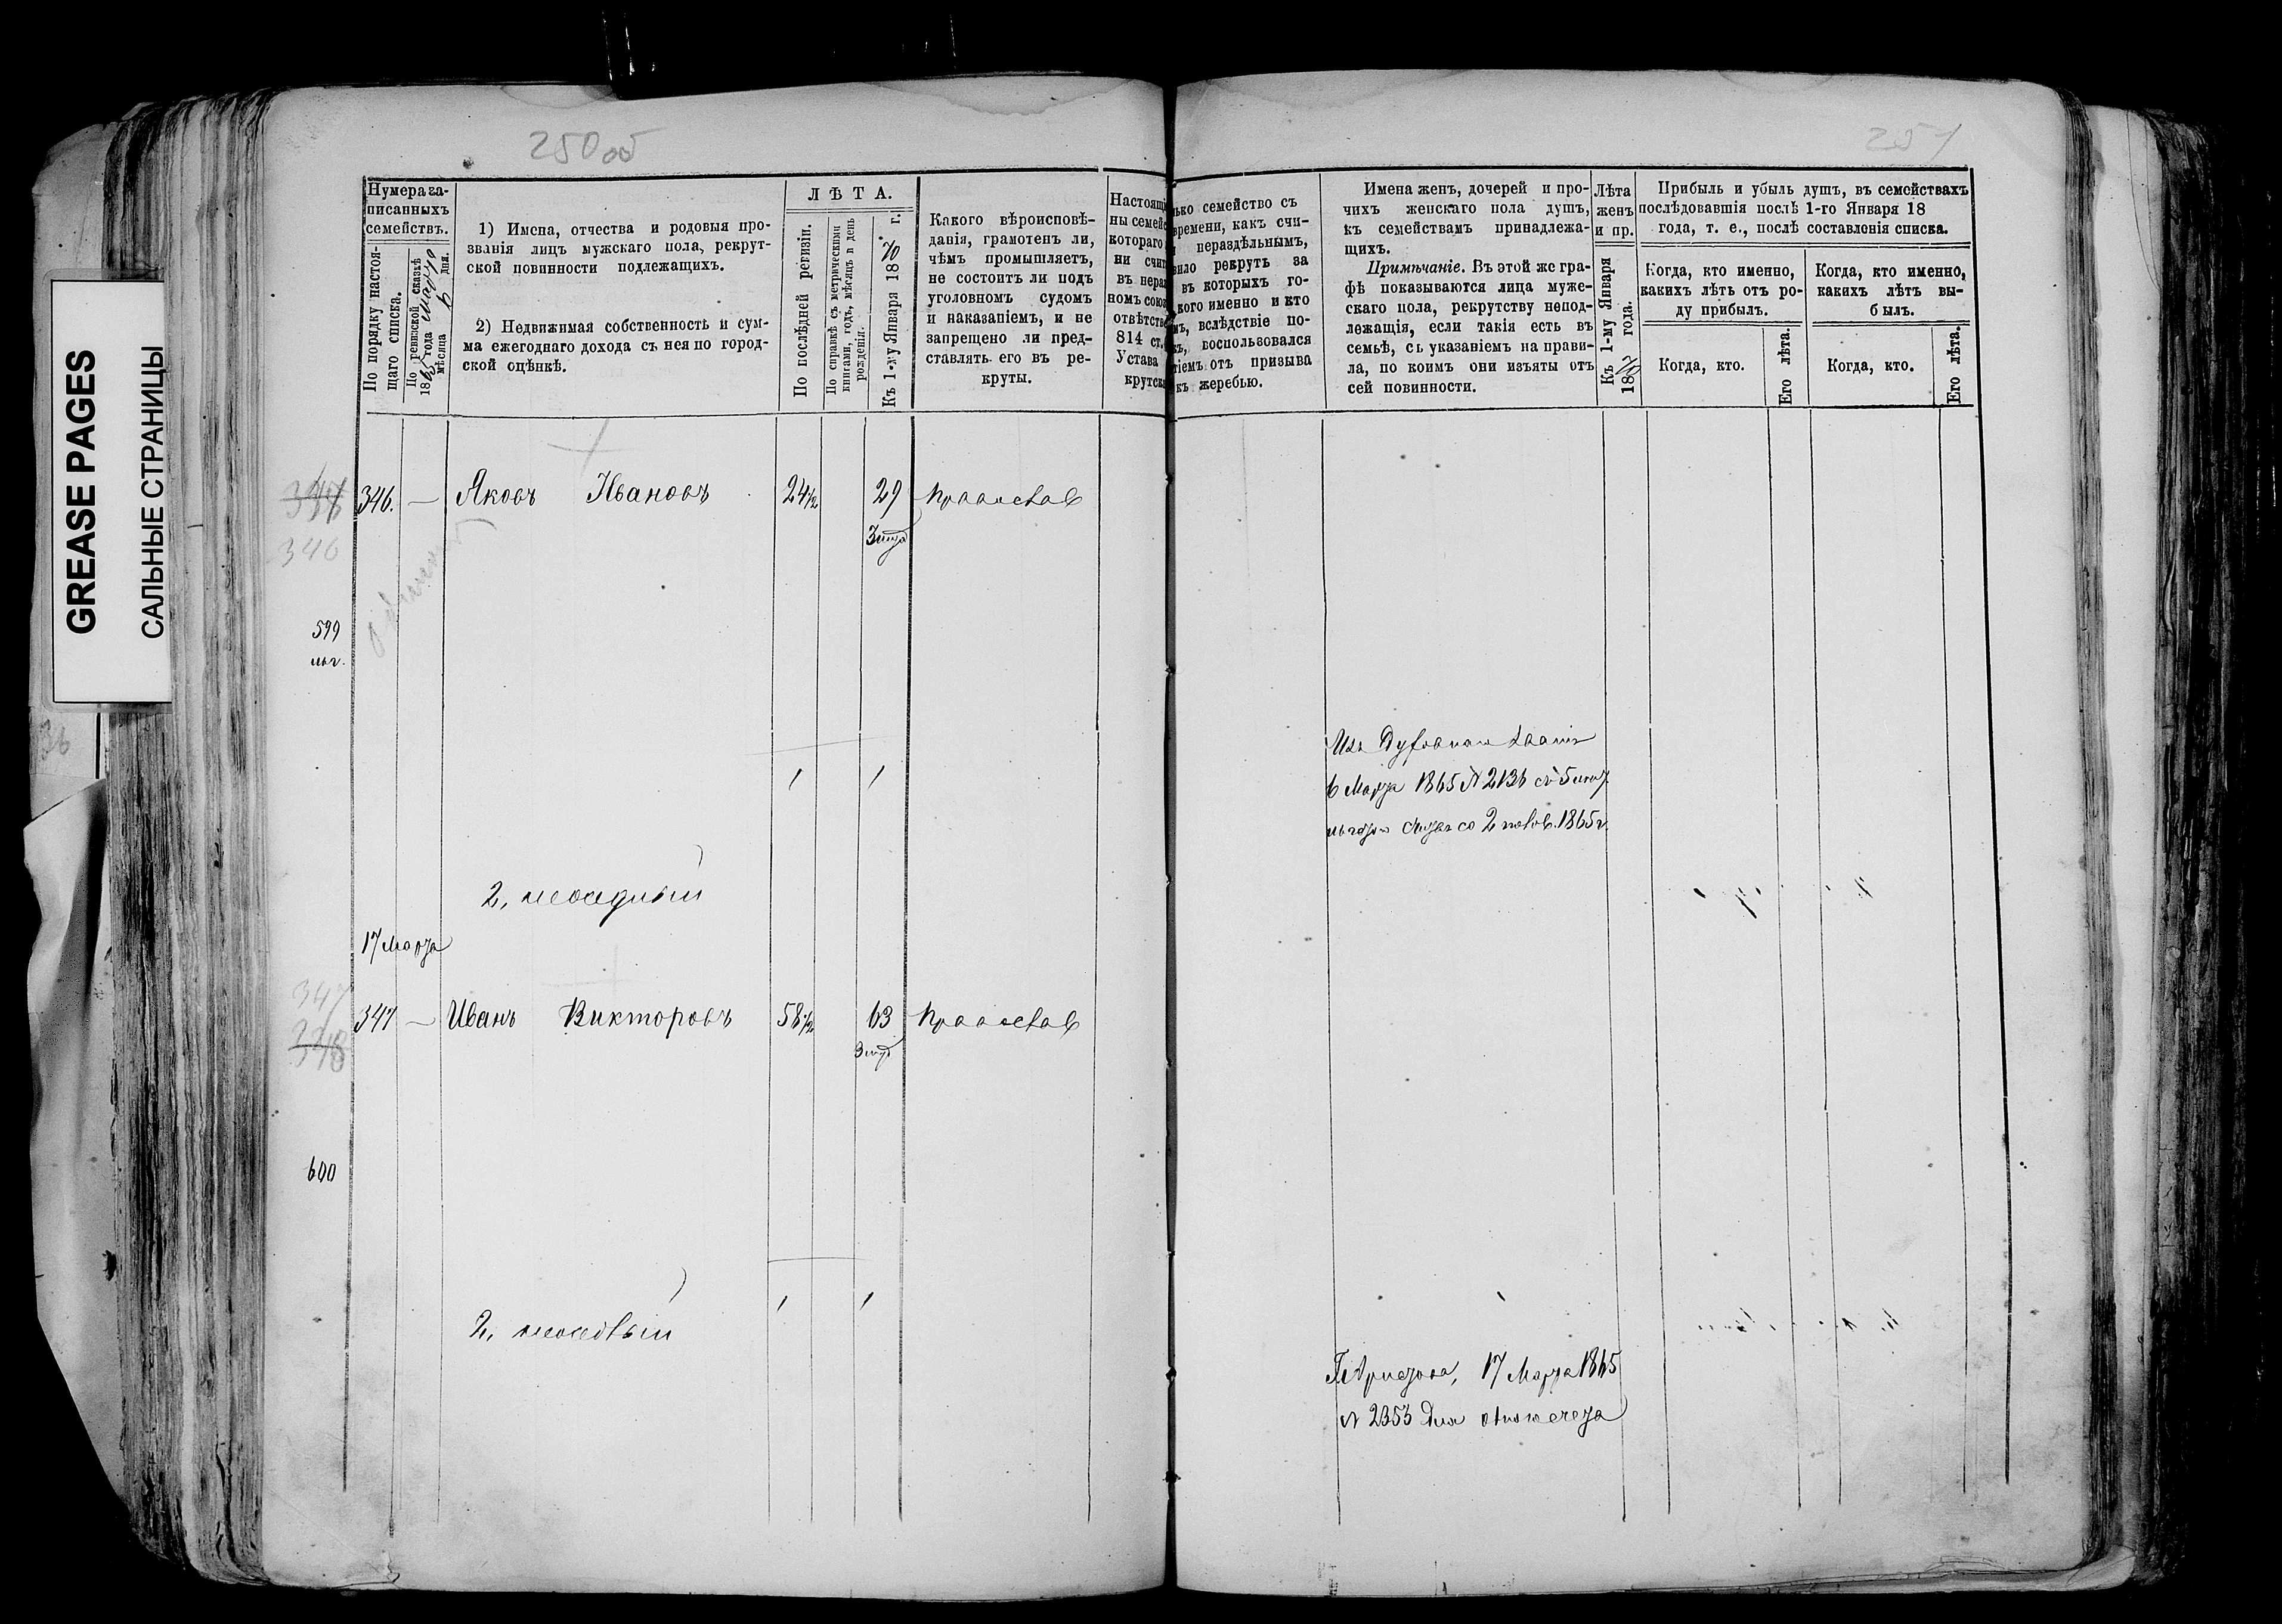 GREASE PAGES
САЛЬНЫЕ СТРАНИЦЫ
250 об
251
Нумера за-
писанныхъ
семействъ.
По порядку настоя-
щаго списка.
По ревизской сказкѣ
1865 года Марта
мѣсяца 6 дня.
1) Имена, отчества и родовыя про-
званія лицъ мужскаго пола, рекрут-
ской повинности подлежащихъ.
2) Недвижимая собственность и сум-
ма ежегоднаго дохода съ нея по город-
ской оцѣнкѣ.
ЛѢТА.
По послѣдней ревизіи.
По справкѣ съ метрическими
книгами, годъ, мѣсяцъ и день
рожденія.
Къ 1-му Января 1870 г.
Какого вѣроисповѣ-
данія, грамотенъ ли,
чѣмъ промышляетъ,
не состоитъ ли подъ
уголовномъ судомъ
и наказаніемъ, и не
запрещено ли пред-
ставлять его въ ре-
круты.
Настоящі
ны семейс
котораго
ни счит
въ нераз
номъ союз
отвѣтстве
814 ст.
Устава
крутск
ько семейство съ
времени, какъ счи-
нераздѣльнымъ,
вило рекрутъ за
въ которыхъ го-
кого именно и кто
мъ, вслѣдствіе по-
къ, воспользовался
тіемъ отъ призыва
къ жеребью.
Имена женъ, дочерей и про-
чихъ женскаго пола душъ,
къ семействамъ принадлежа-
щихъ.
Примѣчаніе. Въ этой же гра-
фѣ показываются лица муже-
скаго пола, рекрутству непод-
лежащія, если такія есть въ
семьѣ, съ указаніемъ на прави-
ла, по коимъ они изъяты отъ
сей повинности.
Лѣта
женъ
и пр.
Къ 1-му Января
18 года.
Прибыль и убыль душъ, въ семействахъ
послѣдовавшія послѣ 1-го Января 18
года, т. е., послѣ составленія списка.
Когда, кто именно,
какихъ лѣтъ отъ ро-
ду прибылъ.
Когда, кто именно,
какихъ лѣтъ вы-
былъ.
Когда, кто.
Его лѣта.
Когда, кто.
Его лѣта.
346. — Яковъ Ивановъ 24 1/2 29 Православ
346
599
льг.
1 1
6 Марта 1865 № 2136 съ 5
со 2 полов. 1865 г.
2, неоседлый
17 Марта
347
347 — Иванъ Викторовъ 58 1/2 63 Православ
348
600
1 1
2, неоседлый
17 Марта 1865
№ 2353 для